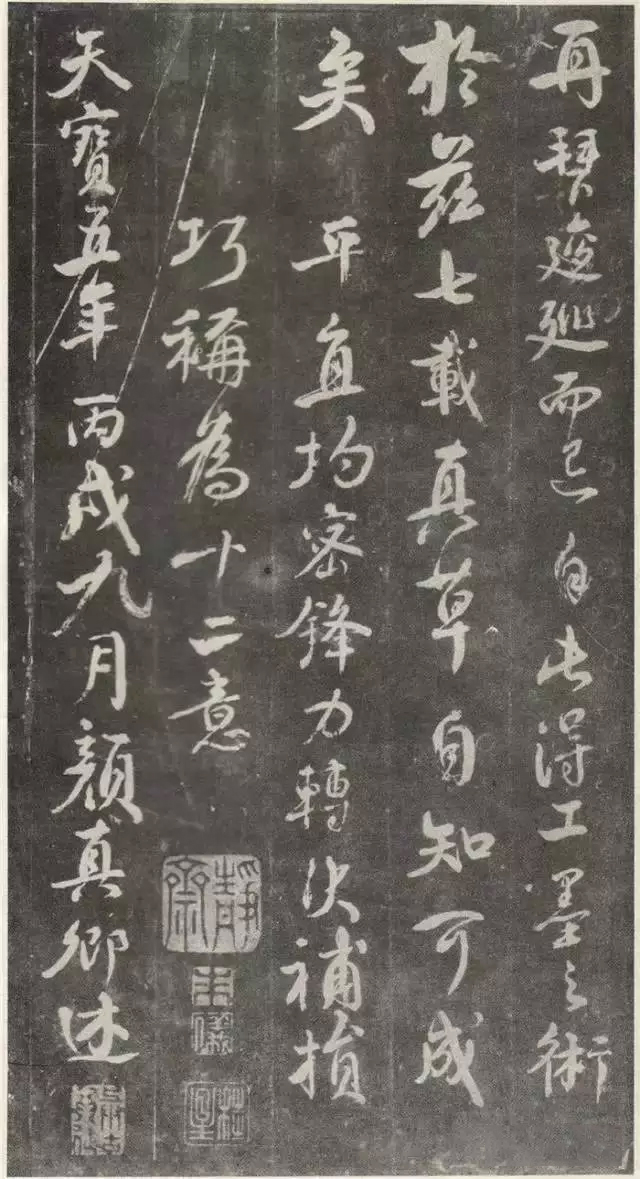 再拜逡廵而已自此得工墨之術
於茲七載真草自知可成
矣 平直均密鋒力轉決補損
巧稱為十二意
天寶五年丙戌九月顏真卿述
靜齋